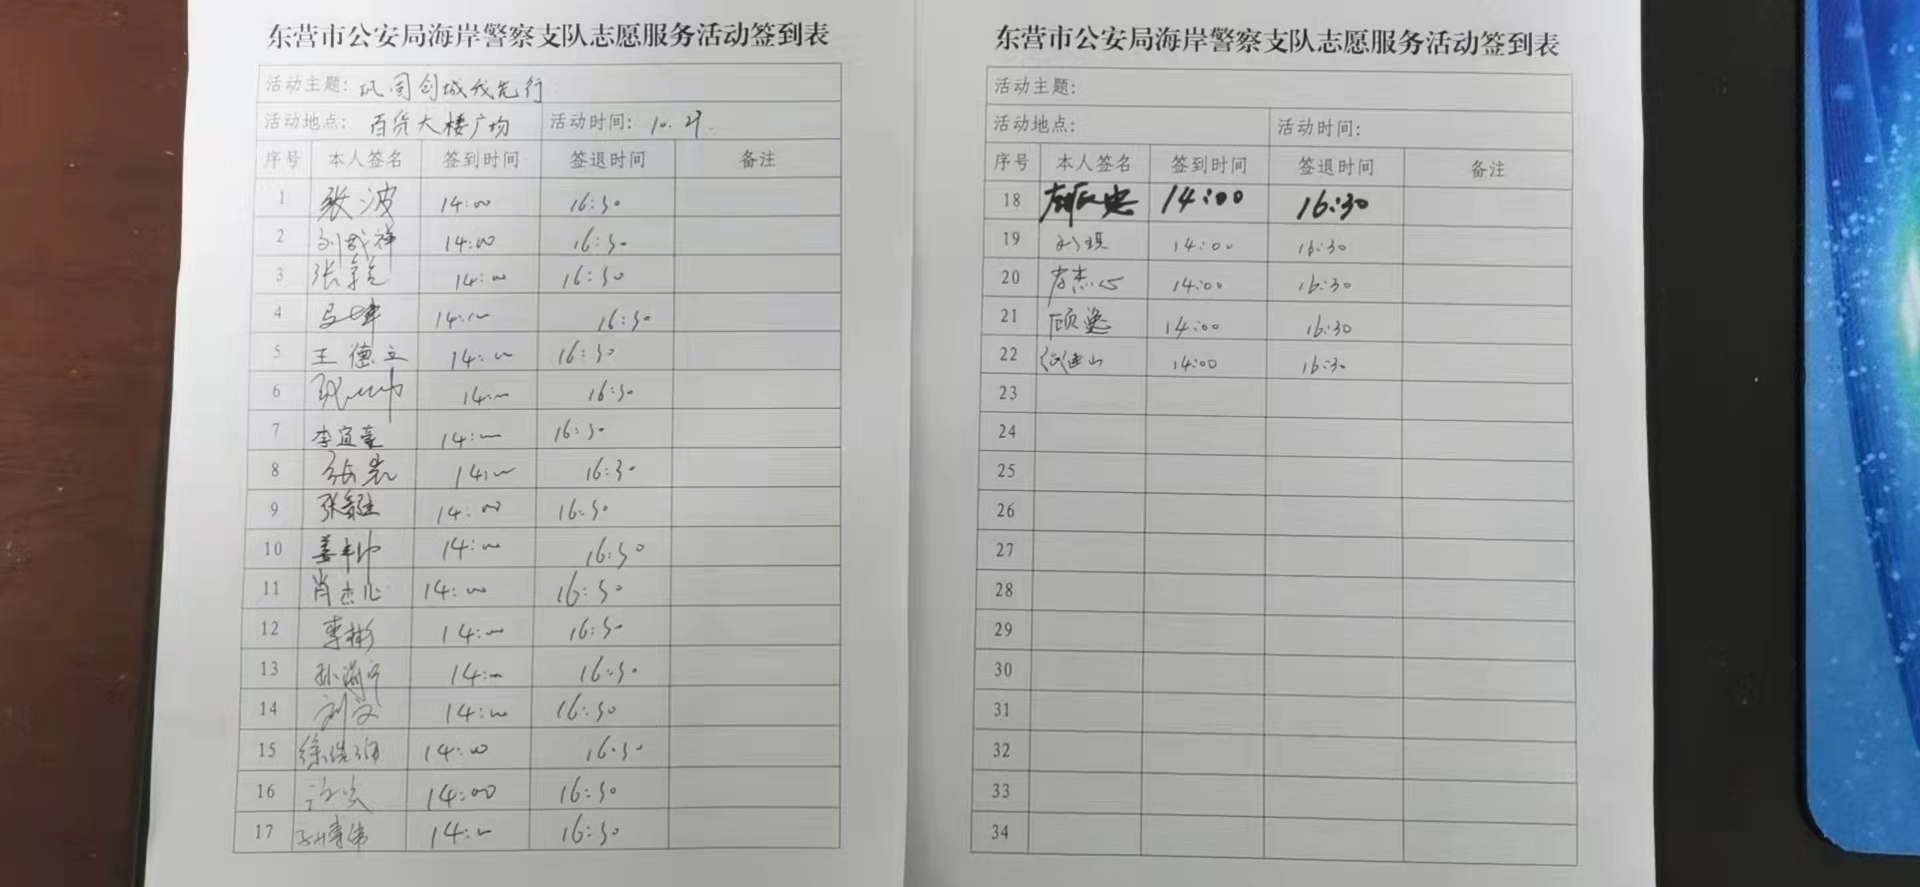 东营市公安局海岸警察支队志愿服务活动签到表
活动主题: 巩固创城我先行
活动地点: 百货大楼广场 活动时间: 10.21.
序号 本人签名 签到时间 签退时间 备注
1 张波 14:00 16:30
2 刘成祥 14:00 16:30
3 张 14:00 16:30
4 14:00 16:30
5 王德立 14:00 16:30
6 14:00 16:30
7 李宜豪 14:00 16:30
8 张岩 14:00 16:30
9 张 14:00 16:30
10 姜帅 14:00 16:30
11 肖杰心 14:00 16:30
12 李彬 14:00 16:30
13 孙 14:00 16:30
14 刘文 14:00 16:30
15 徐 14:00 16:30
16 14:00 16:30
17 博伟 14:00 16:30
东营市公安局海岸警察支队志愿服务活动签到表
活动主题:
活动地点: 活动时间:
序号 本人签名 签到时间 签退时间 备注
18 14:00 16:30
19 刘琪 14:00 16:30
20 杰心 14:00 16:30
21 顾逸 14:00 16:30
22 14:00 16:30
23
24
25
26
27
28
29
30
31
32
33
34